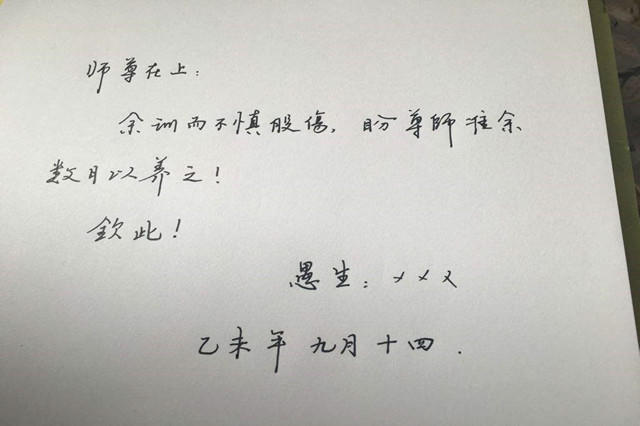 师尊在上：
余训而不慎股傷，盼尊師准余
数月以养之！
欽此！
愚生：×××
乙未年 九月十四.